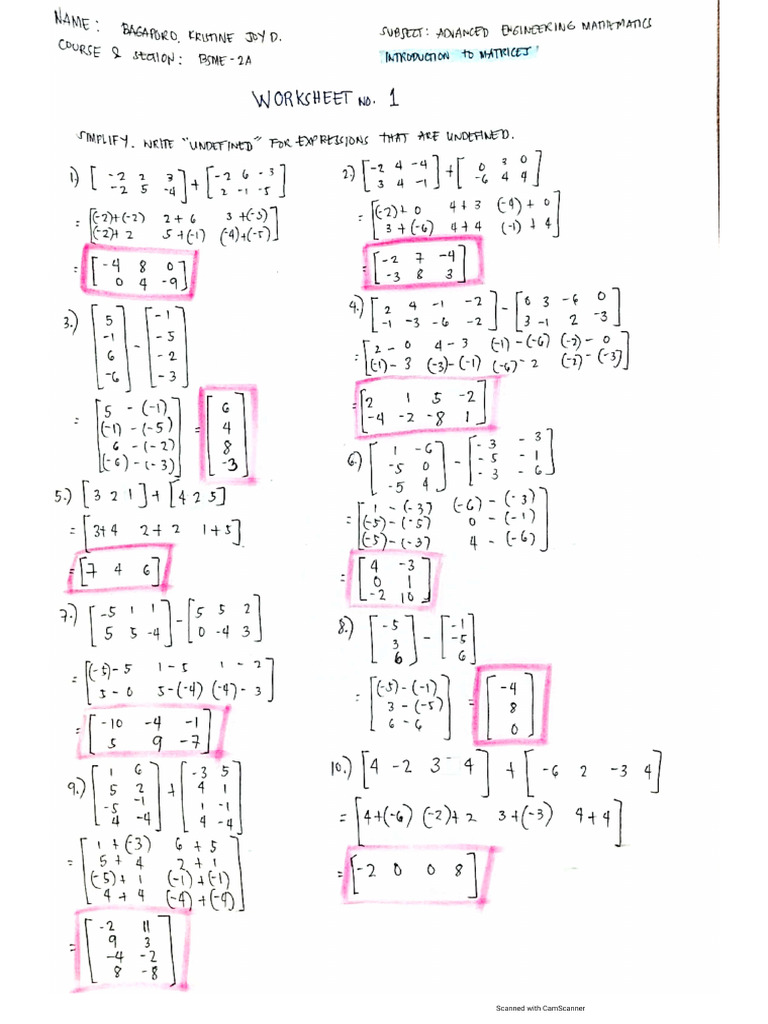 NAME: BAGAPORO, KRISTINE JOY D.
SUBJECT: ADVANCED ENGINEERING MATHEMATICS
COURSE & SECTION: BSME-2A
INTRODUCTION TO MATRICES
WORKSHEET NO. 1
SIMPLIFY. WRITE "UNDEFINED" FOR EXPRESSIONS THAT ARE UNDEFINED.
1.) [-2 2 3
-2 5 -4] + [-2 6 -3
2 -1 -5]
= [(-2)+(-2) 2+6 3+(-3)
(-2)+2 5+(-1) (-4)+(-5)]
= [-4 8 0
0 4 -9]
2.) [-2 4 -4
3 4 -1] + [0 3 0
-6 4 4]
= [(-2)+0 4+3 (-4)+0
3+(-6) 4+4 (-1)+4]
= [-2 7 -4
-3 8 3]
3.) [5
-1
6
-6] - [-1
-5
-2
-3]
= [5-(-1)
(-1)-(-5)
6-(-2)
(-6)-(-3)] = [6
4
8
-3]
4.) [2 4 -1 -2
-1 -3 -6 -2] - [0 3 -6 0
3 -1 2 -3]
= [2-0 4-3 (-1)-(-6) (-2)-0
(-1)-3 (-3)-(-1) (-6)-2 (-2)-(-3)]
= [2 1 5 -2
-4 -2 -8 1]
5.) [3 2 1] + [4 2 5]
= [3+4 2+2 1+5]
= [7 4 6]
6.) [1 -6
-5 0
-5 4] - [-3 -3
-5 -1
-3 -6]
= [1-(-3) (-6)-(-3)
(-5)-(-5) 0-(-1)
(-5)-(-3) 4-(-6)]
= [4 -3
0 1
-2 10]
7.) [-5 1 1
5 5 -4] - [5 5 2
0 -4 3]
= [(-5)-5 1-5 1-2
5-0 5-(-4) (-4)-3]
= [-10 -4 -1
5 9 -7]
8.) [-5
3
6] - [-1
-5
6]
= [(-5)-(-1)
3-(-5)
6-6] = [-4
8
0]
9.) [1 6
5 2
-5 -1
4 -4] + [-3 5
4 1
1 -1
4 -4]
= [1+(-3) 6+5
5+4 2+1
(-5)+1 (-1)+(-1)
4+4 (-4)+(-4)]
= [-2 11
9 3
-4 -2
8 -8]
10.) [4 -2 3 4] + [-6 2 -3 4]
= [4+(-6) (-2)+2 3+(-3) 4+4]
= [-2 0 0 8]
Scanned with CamScanner